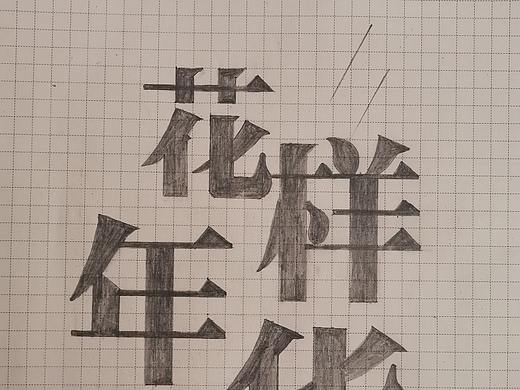 花样
年华